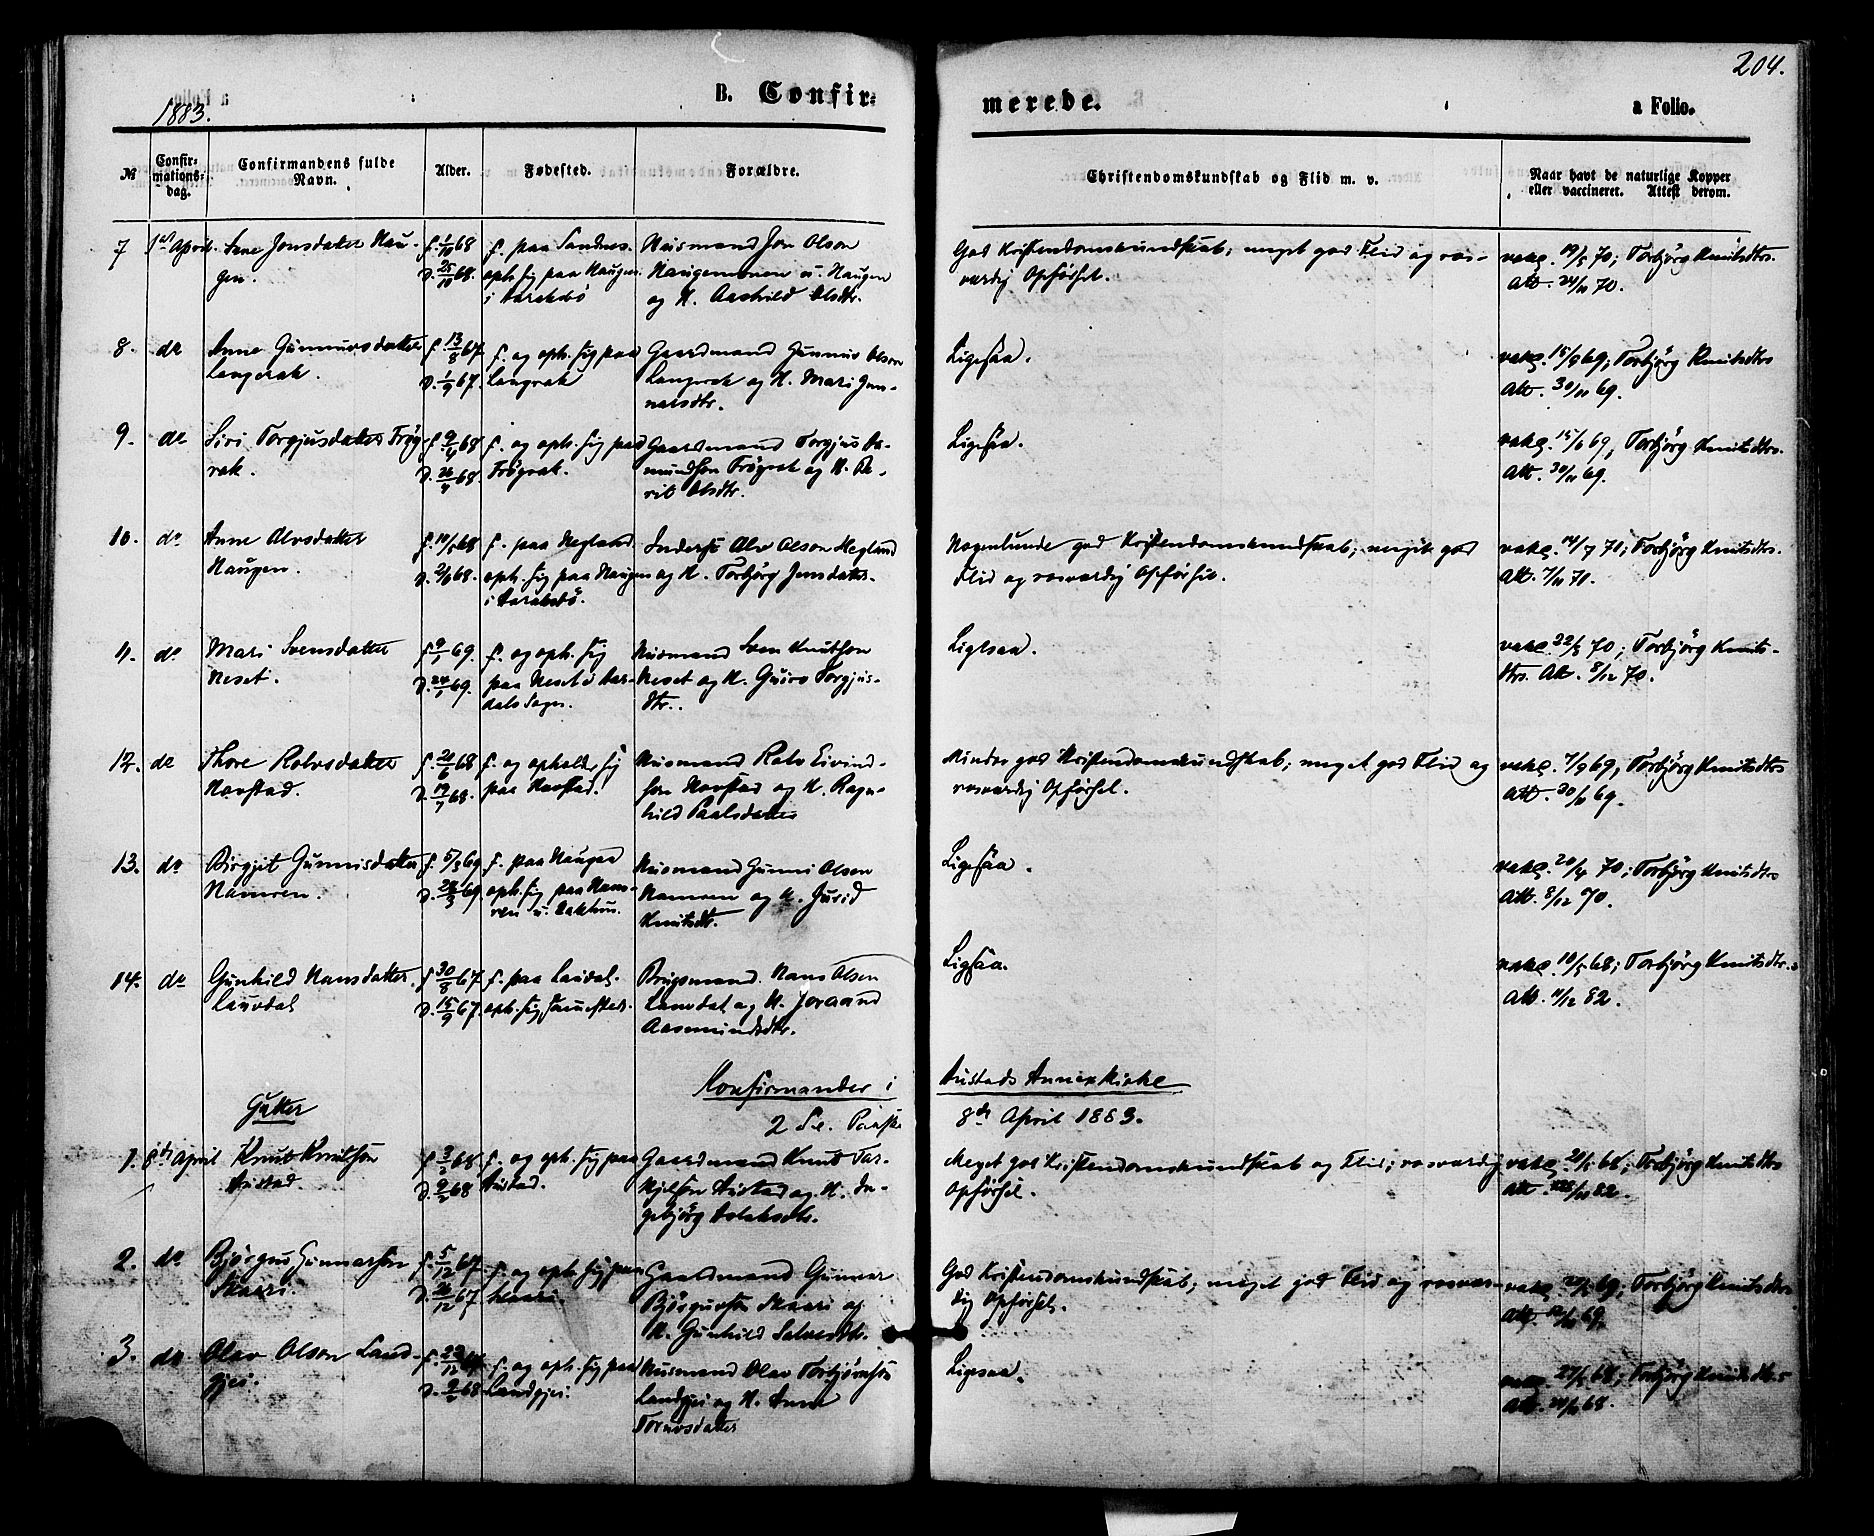 204.
1883.
B. Confir-
merede.
a Folio.
№
Confir-
mations-
dag.
Confirmandens fulde
Navn.
Alder.
Fødested.
Forældre.
Christendomskundskab og Flid m. v.
Naar havt de naturlige Kopper
eller vaccineret. Attest derom.
7 1ste April. Jonsdatter Hau-
gen.
f. 1/10 68
D. 25/10 68.
f. paa Sandnes.
oph. sig paa Haugen
i Aaraksbø
Huusmand Jon Olson
Haugemonen u. Haugen
og K. Aashild Olsdtr.
God Kristendomskundskab; meget god Flid og ros-
værdig Opførsel.
vakc. 19/5 70; Torbjørg Knutsdtr.
Att. 70.
8. do Anne Gunnarsdatter
Langerak.
f. 13/8 67.
D. 1/9 67.
f. og oph. sig paa
Langrak
Gaardmand Gunnar Olson
Langerak og K. Mari Gun-
narsdtr.
Ligesaa.
vakc. 15/9 69; Torbjørg Knutsdtr
Att. 30/11 69.
9. do Siri Torgjusdatter Frøy-
rak.
f. 9/4 68
D. 26/4 68.
f. og oph. sig paa
Frøyrak.
Gaardmand Torgjus Aa-
mundson Frøyrak og K. Be-
rit Olsdtr.
Ligesaa.
vakc. 69; Torbjørg Knutsdtr.
Att. 30/11 69.
10. do Anne Alvsdatter
Haugen.
f. 68
D. 68.
f. paa Hegland
oph. sig paa Haugen
i Aaraksbø.
Inderst Alv Olson Hegland
og K. Torbjørg Jonsdatter.
Nogenlunde god Kristendomskundskab; meget god
Flid og rosværdig Opførsel.
vakc. 14/7 70; Torbjørg Knutsdtr.
Att. 7/11 70.
11. do Mari Svensdatter
Neset.
f. 9/1 69.
D. 24/1 69.
f. og oph. sig
paa Neset i Aar-
dals Sogn.
Huusmand Sven Knutson
Neset og K. Guro Torgjus-
dtr.
Ligesaa.
vakc. 22/5 70; Torbjørg Knuts-
dtr. Att. 8/12 70.
12. do Thore Rolvsdatter
Havstad.
f. 21/6 68
D. 19/7 68.
f. og opholder sig
paa Havstad.
Huusmand Rolv Eivind-
son Havstad og K. Ragn-
hild Paalsdatter
Mindre god Kristendomskundskab; meget god Flid og
rosværdig Opførsel.
vakc. 7/9 69; Torbjørg Knutsdtr
Att. 30/11 69.
13. do Birgit Gunnisdatter
Hamren.
f. 5/3 69
D. 28/3 69.
f. paa Haugaa
oph. sig paa Ham-
ren u.
Huusmand Gunni Olson
Hamren og K. Jurid
Knutsdt.
Ligesaa.
vakc. 70; Torbjørg Knutsdtr
Att. 8/12 70.
14. do Gunhild Hansdatter
Lauvdal
f. 30/8 67.
D. 15/9 67.
f. paa Lauvdal.
oph. sig sammesteds.
Brugsmand Hans Olsen
Lauvdal og K. Joraand
Aasmundsdtr.
Ligesaa.
vakc. 10/5 68; Torbjørg Knutsdtr.
Att. 11/12 82.
Konfirmander i
Austads Annexkirke
Gutter
2 S. e. Paaske
8de April 1883.
1. 8de April Knut Knutson
Austad.
f. 3/2 68.
D. 9/2 68
f. og oph. sig paa
Austad.
Gaardmand Knut Tar-
kjelson Austad og K. In-
gebjørg Aslaksdtr.
Meget god Kristendomskundskab og Flid; rosværdig
Opførsel.
vakc. 68; Torbjørg Knutsdtr
Att. 82.
2. do Bjørgu Gunnarson
Skaari.
f. 5/12 67
D. 26/12 67
f. og oph. sig paa
Skaari.
Gaardmand Gunnar
Bjørguvson Skaari og
K. Gunhild Salvesdtr.
God Kristendomskundskab; meget god Flid og rosvær-
dig Opførsel.
vakc. 69; Torbjørg Knutsdtr.
Att. 69.
3. do Olav Olson Land-
gjei.
f.
D. 9/2 68
f. og oph. sig paa
Landgjei.
Huusmand Olav Torbjørnson
Landgjei og K. Anne
Torvsdatter
Ligesaa.
vakc. 68; Torbjørg Knutsdtr.
Att. 68.